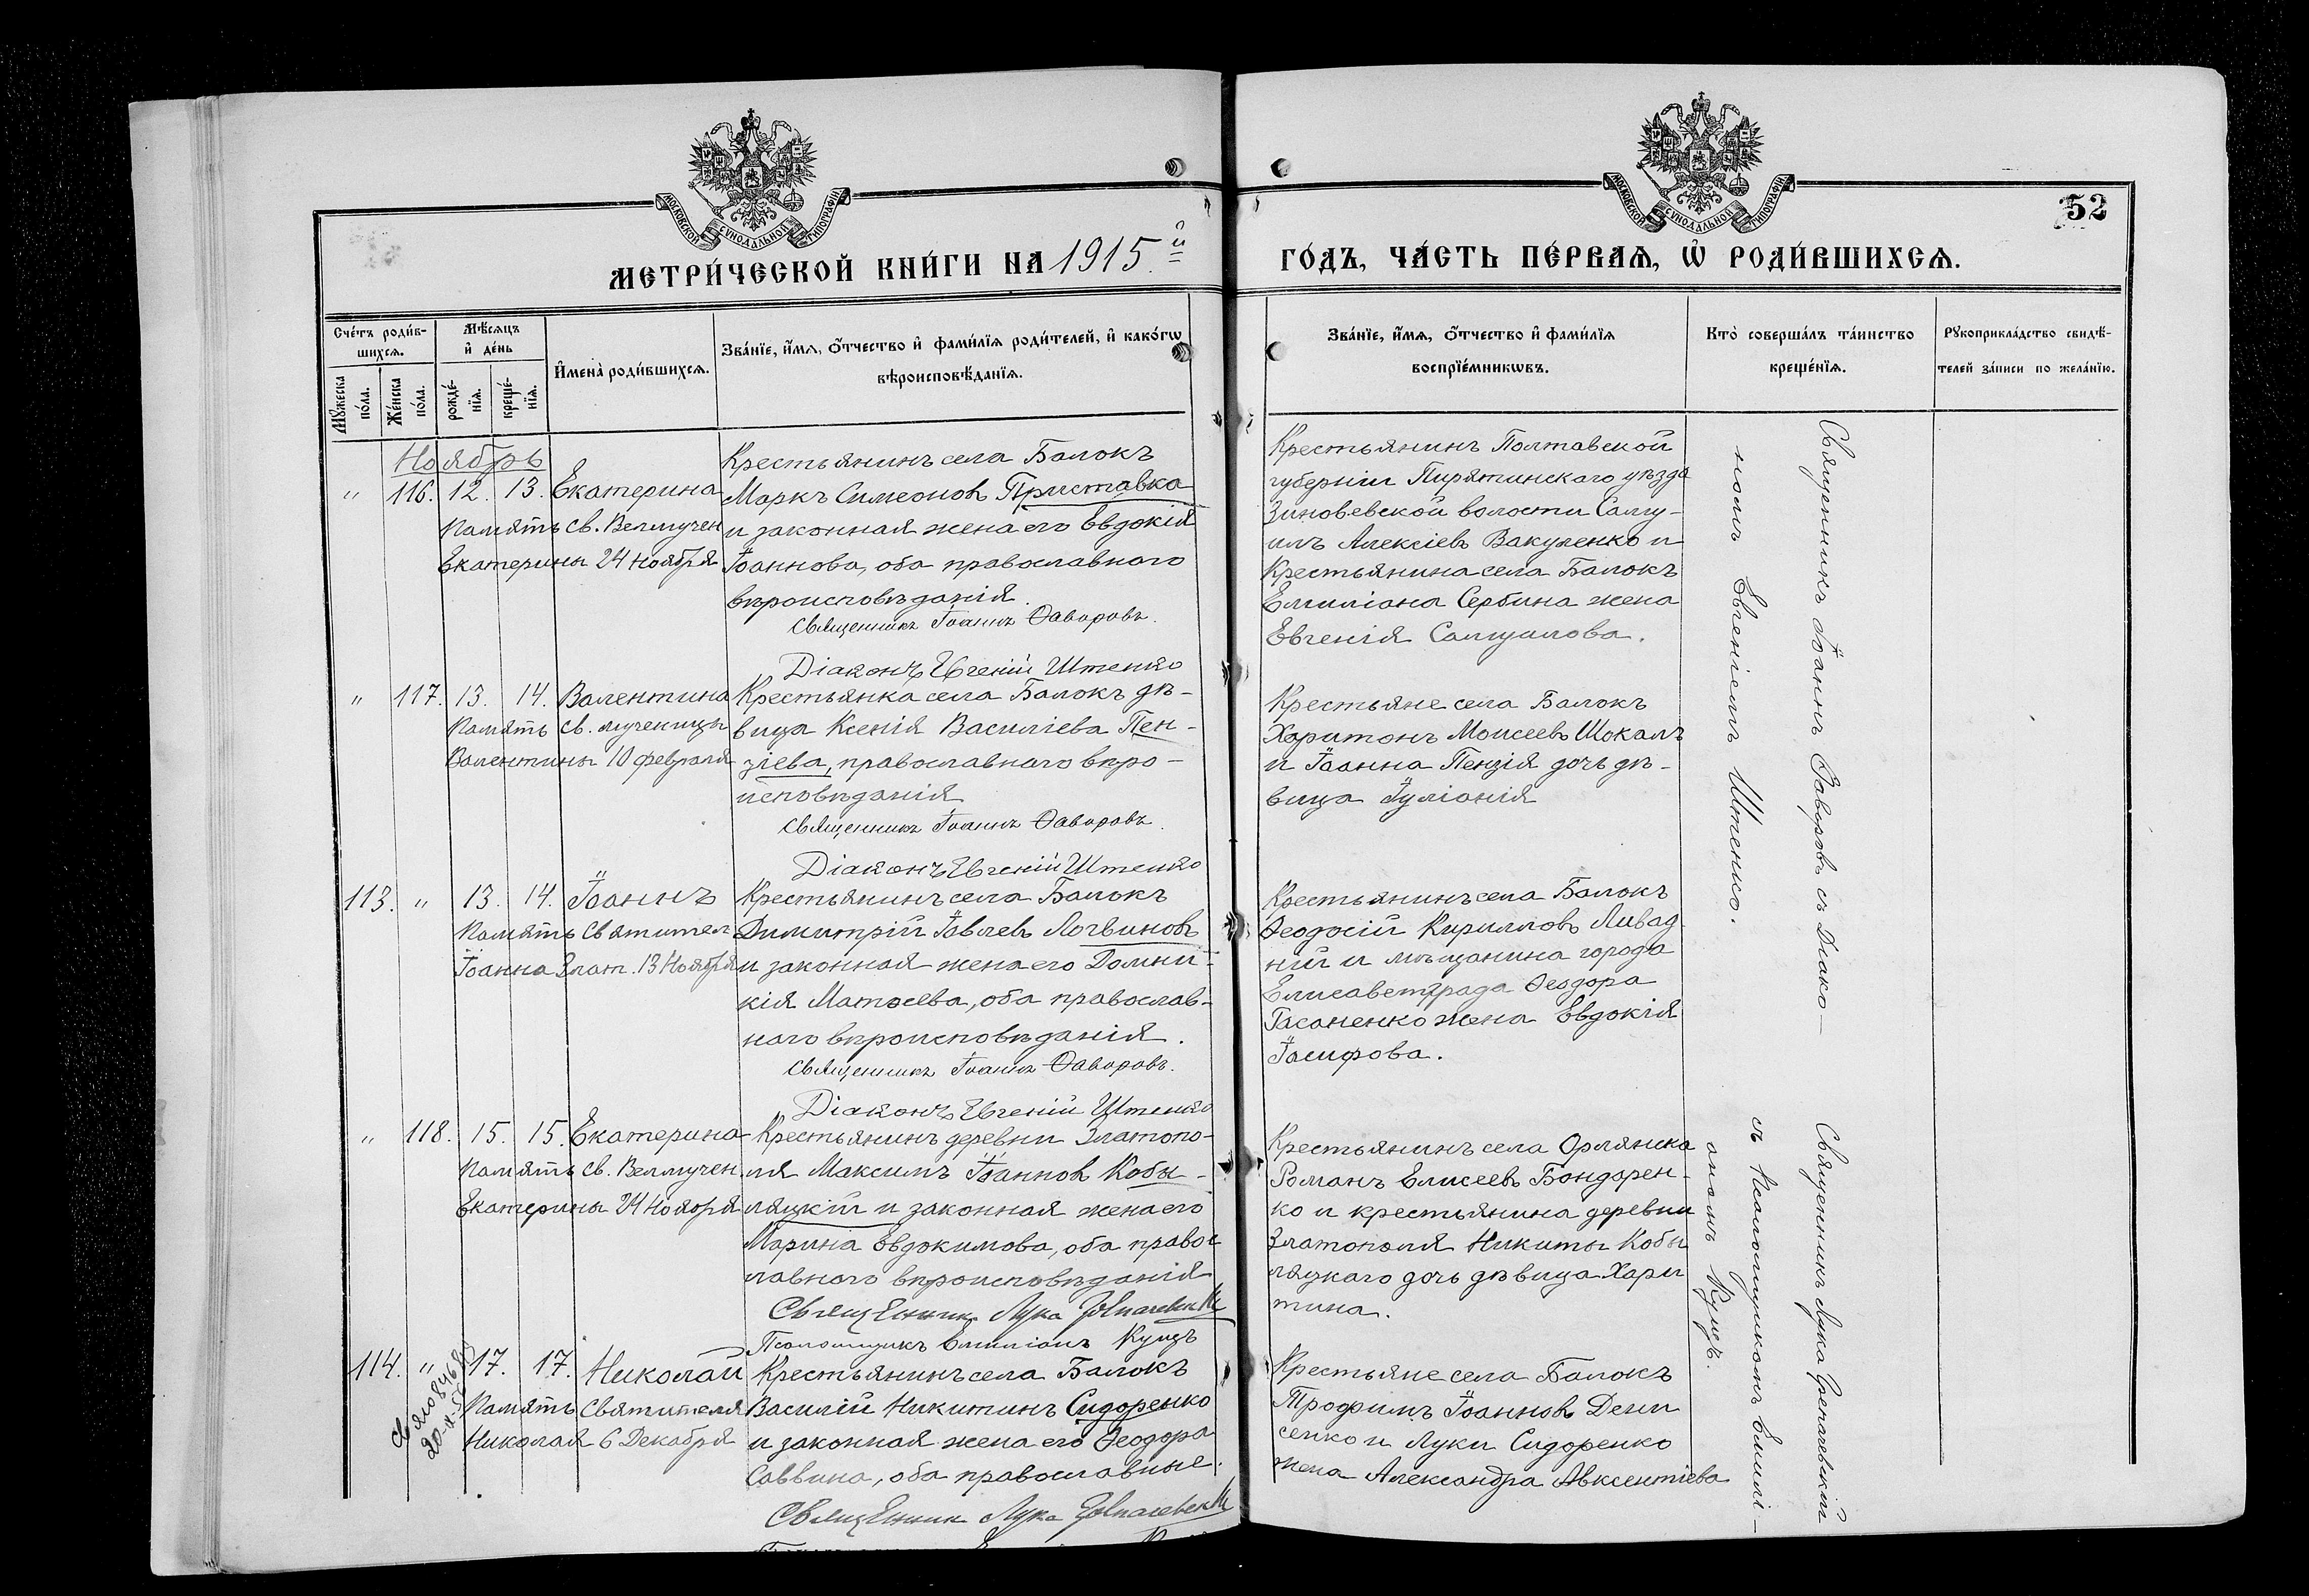 МОСКОВСКОЙ СУНОДАЛЬНОЙ ТИПОГРАФІИ
МОСКОВСКОЙ СУНОДАЛЬНОЙ ТИПОГРАФІИ
52
МЕТРИ́ЧЕСКОЙ КНИ́ГИ НА 1915.й
ГО́ДЪ, ЧА́СТЬ ПЕ́РВАѦ, Ѡ҆ РОДИ́ВШИХСѦ.
Сче́тъ роди́в-
шихсѧ.
Мѣ́сѧцъ
и҆ де́нь
Мꙋ́жеска
по́ла.
Же́нска
по́ла.
рожде́-
нїѧ.
креще́-
нїѧ.
И҆мена̀ роди́вшихсѧ.
Зва́нїе, и҆́мѧ, ѻ҆́тчество и҆ фами́лїѧ роди́телей, и҆ како́гѡ
вѣроисповѣ́данїѧ.
Зва́нїе, и҆́мѧ, ѻ҆́тчество и҆ фами́лїѧ
воспрїе́мникѡвъ.
Кто̀ соверша́лъ та́инство
креще́нїѧ.
Рꙋкоприкла́дство свидѣ́-
телей за́писи по жела́нїю.
Ноябрь
" 116. 12. 13. Екатерина
Память св. Велмучен
Екатерины 24 Ноября
Крестьянинъ села Балокъ
Маркъ Симеоновъ Приставка
и законная жена его Евдокія
Іоаннова, оба православного
вѣроисповѣданія.
Священникъ Іоаннъ Ѳаворовъ.
Діаконъ Евгеній Штенко
Крестьянинъ Полтавской
губерніи Пирятинскаго уѣзда
Зиновьевской волости Саму-
илъ Алексіевъ Вакуленко и
Крестьянина села Балокъ
Емиліана Сербина жена
Евгенія Самуилова.
Священникъ Іоаннъ Ѳаворовъ съ Діако-
номъ Евгеніемъ Штенко.
" 117. 13. 14. Валентина
Память св. мученицы
Валентины 10 февраля
Крестьянка села Балокъ дѣ-
вица Ксенія Василіева Пен-
зіева, православнаго вѣро-
исповѣданія
Священникъ Іоаннъ Ѳаворовъ.
Діаконъ Евгеній Штенко
Крестьяне села Балокъ
Харитонъ Моисеевъ Шокалъ
и Іоанна Пензія дочь дѣ-
вица Іуліанія
113. " 13. 14. Іоаннъ
Память Святител
Іоанна Злат. 13 Ноября
Крестьянинъ села Балокъ
Димитрій Іовлевъ Логвиновъ
и законная жена его Домни-
кія Матѳеева, оба православ-
наго вѣроисповѣданія.
Священникъ Іоаннъ Ѳаворовъ.
Діаконъ Евгеній Штенко
Крестьянинъ села Балокъ
Ѳеодосій Кирилловъ Ливад
ний и мѣщанина города
Елисаветграда Ѳеодора
Гасаненко жена Евдокія
Іосифова.
" 118. 15. 15. Екатерина
Память св. Велмучен.
Екатерины 24 Ноября
Крестьянинъ деревни Златопо-
ля Максимъ Іоанновъ Кобы-
ляцкій и законная жена его
Марина Евдокимова, оба правос
лавного вѣроисповѣданія
Священникъ Лука
Псаломщикъ Емиліанъ Кущъ
Крестьянинъ села Орлянска
Романъ Елисеевъ Бондарен-
ко и крестьянина деревни
Златополя Никиты Кобы
ляцкаго дочь дѣвица Хари
тина.
Священникъ Лука
съ Псаломщикомъ Емилі-
аномъ Кущъ.
114. " 17. 17. Николай
Память Святителя
Николая 6 Декабря
Крестьянинъ села Балокъ
Василій Никитинъ Сидоренко
и законная жена его Ѳеодора
Саввина, оба православные.
Священникъ Лука
Крестьяне села Балокъ
Трофимъ Іоанновъ Дени
сенко и Луки Сидоренко
жена Александра Авксентіева